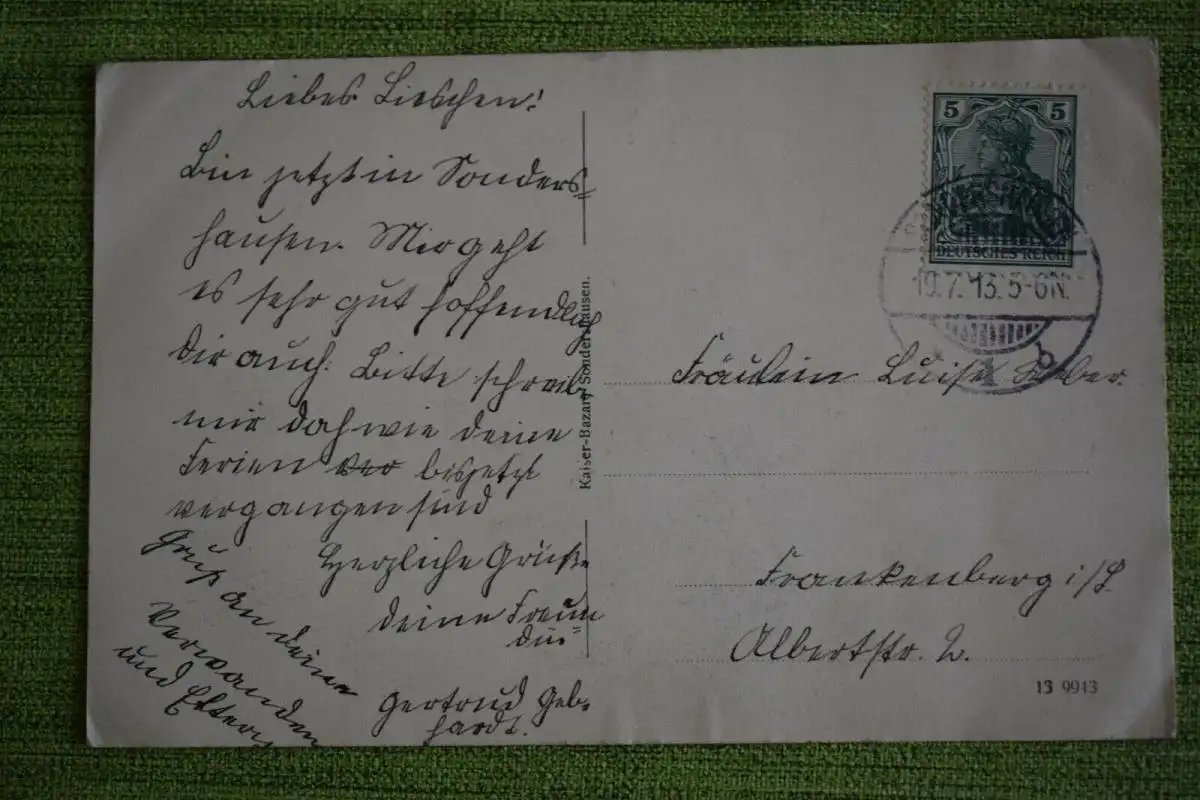 Liebes Lieschen!
Bin jetzt in Sonders=
hausen. Mir geht
es sehr gut hoffendlich
Dir auch. Bitte schreib
mir doch wie deine
Ferien ver bis jetzt
vergangen sind
Herzliche Grüße
deine Freun
din
Gertrud Geb=
hardt.
Gruß an deine
Verwanden
und Eltern
Kaiser-Bazar, Sondershausen.
5 5
DEUTSCHES REICH
19.7.13.5-6N.
b
Fräulein Luise
Frankenberg i/S.
Albertstr. 2.
13 9913